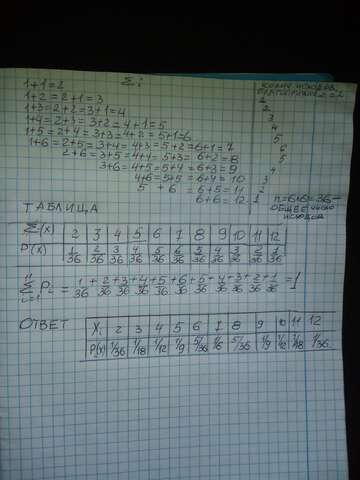 Σi
1+1=2
1+2=2+1=3
1+3=2+2=3+1=4
1+4=2+3=3+2=4+1=5
1+5=2+4=3+3=4+2=5+1=6
1+6=2+5=3+4=4+3=5+2=6+1=7
2+6=3+5=4+4=5+3=6+2=8
3+6=4+5=5+4=6+3=9
4+6=5+5=6+4=10
5+6=6+5=11
6+6=12
исходов
2
3
4
5
6
5
4
3
2
1
n=6×6=36
общее число исходов
ТАБЛИЦА
Σ(X) 2 3 4 5 6 7 8 9 10 11 12
P(X) 1/36 2/36 3/36 4/36 5/36 6/36 5/36 4/36 3/36 2/36 1/36
11 Σ i=1 Pi = 1/36 + 2/36 + 3/36 + 4/36 + 5/36 + 6/36 + 5/36 + 4/36 + 3/36 + 2/36 + 1/36 = 1
ОТВЕТ
Xi 2 3 4 5 6 7 8 9 10 11 12
P(X) 1/36 1/18 1/12 1/9 5/36 1/6 5/36 1/9 1/12 1/18 1/36